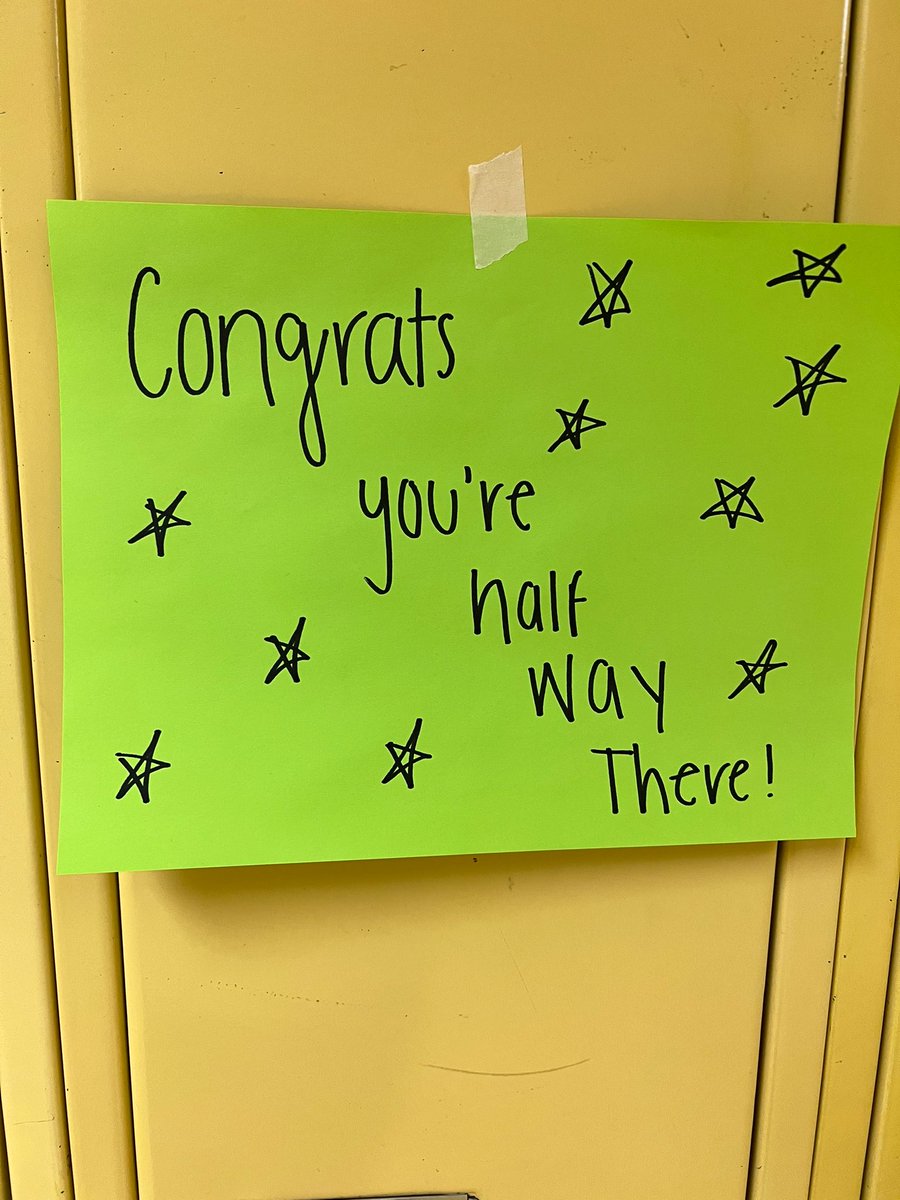 Congrats
you're
half
way
There!